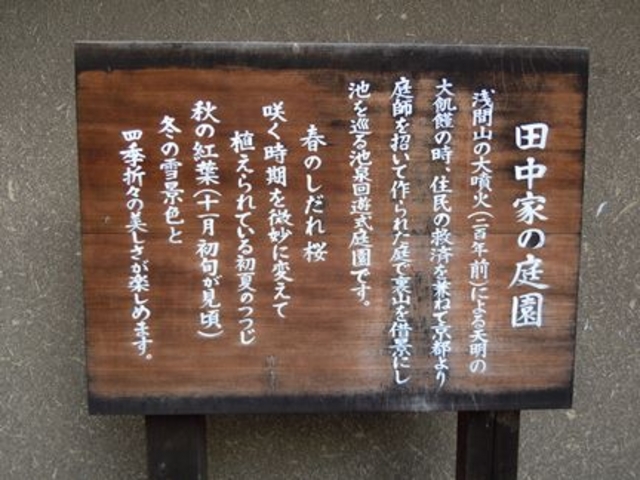 田中家の庭園
浅間山の大噴火(二百年前)による天明の
大飢饉の時、住民の救済を兼ねて京都より
庭師を招いて作られた庭で裏山を借景にし
池を巡る池泉回遊式庭園です。
春のしだれ桜
咲く時期を微妙に変えて
植えられている初夏のつつじ
秋の紅葉(十一月初旬が見頃)
冬の雪景色と
四季折々の美しさが楽しめます。